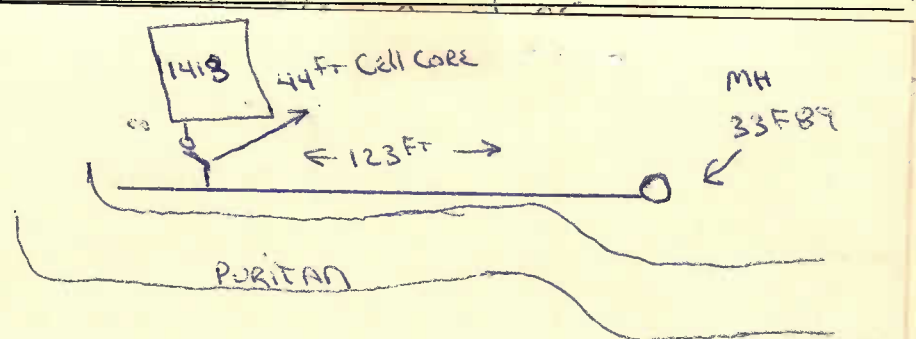 1418
44 FT Cell CORE
MH
33F89
← 123 FT →
PURITAN